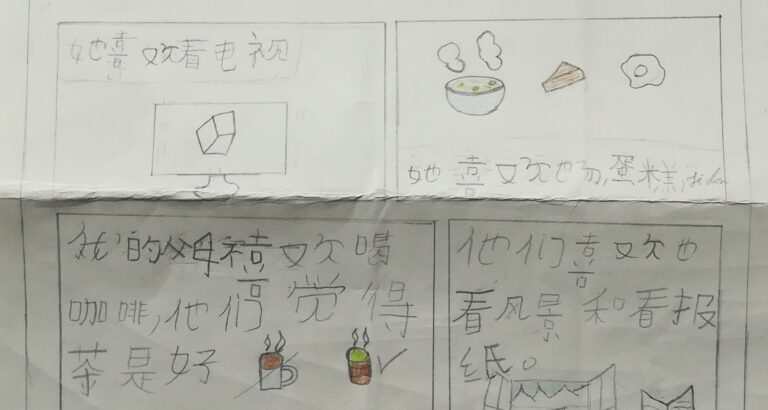 她喜欢看电视
她喜欢 蛋糕,
我的父母喜欢喝
咖啡,他们觉得
茶是好
他们喜欢也
看风景和看报
纸。